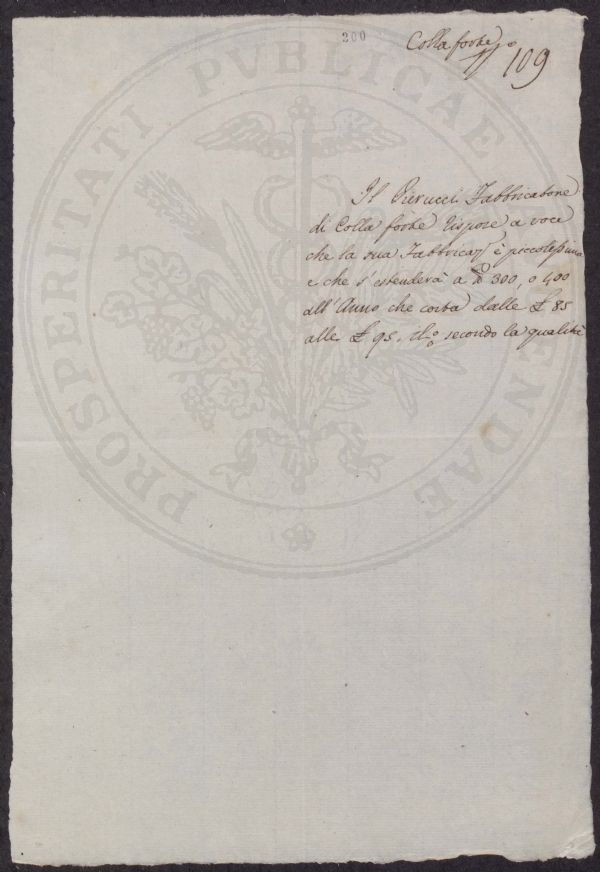 200
Colla forte
109
Il Pierucci Fabbricatore
di Colla forte rispose a voce
che la sua Fabbrica è piccolissima
e che s'estenderà a 300, o 400
all'Anno che costa dalle £ 85
alle £ 95. secondo la qualità
PROSPERITATI PVBLICAE